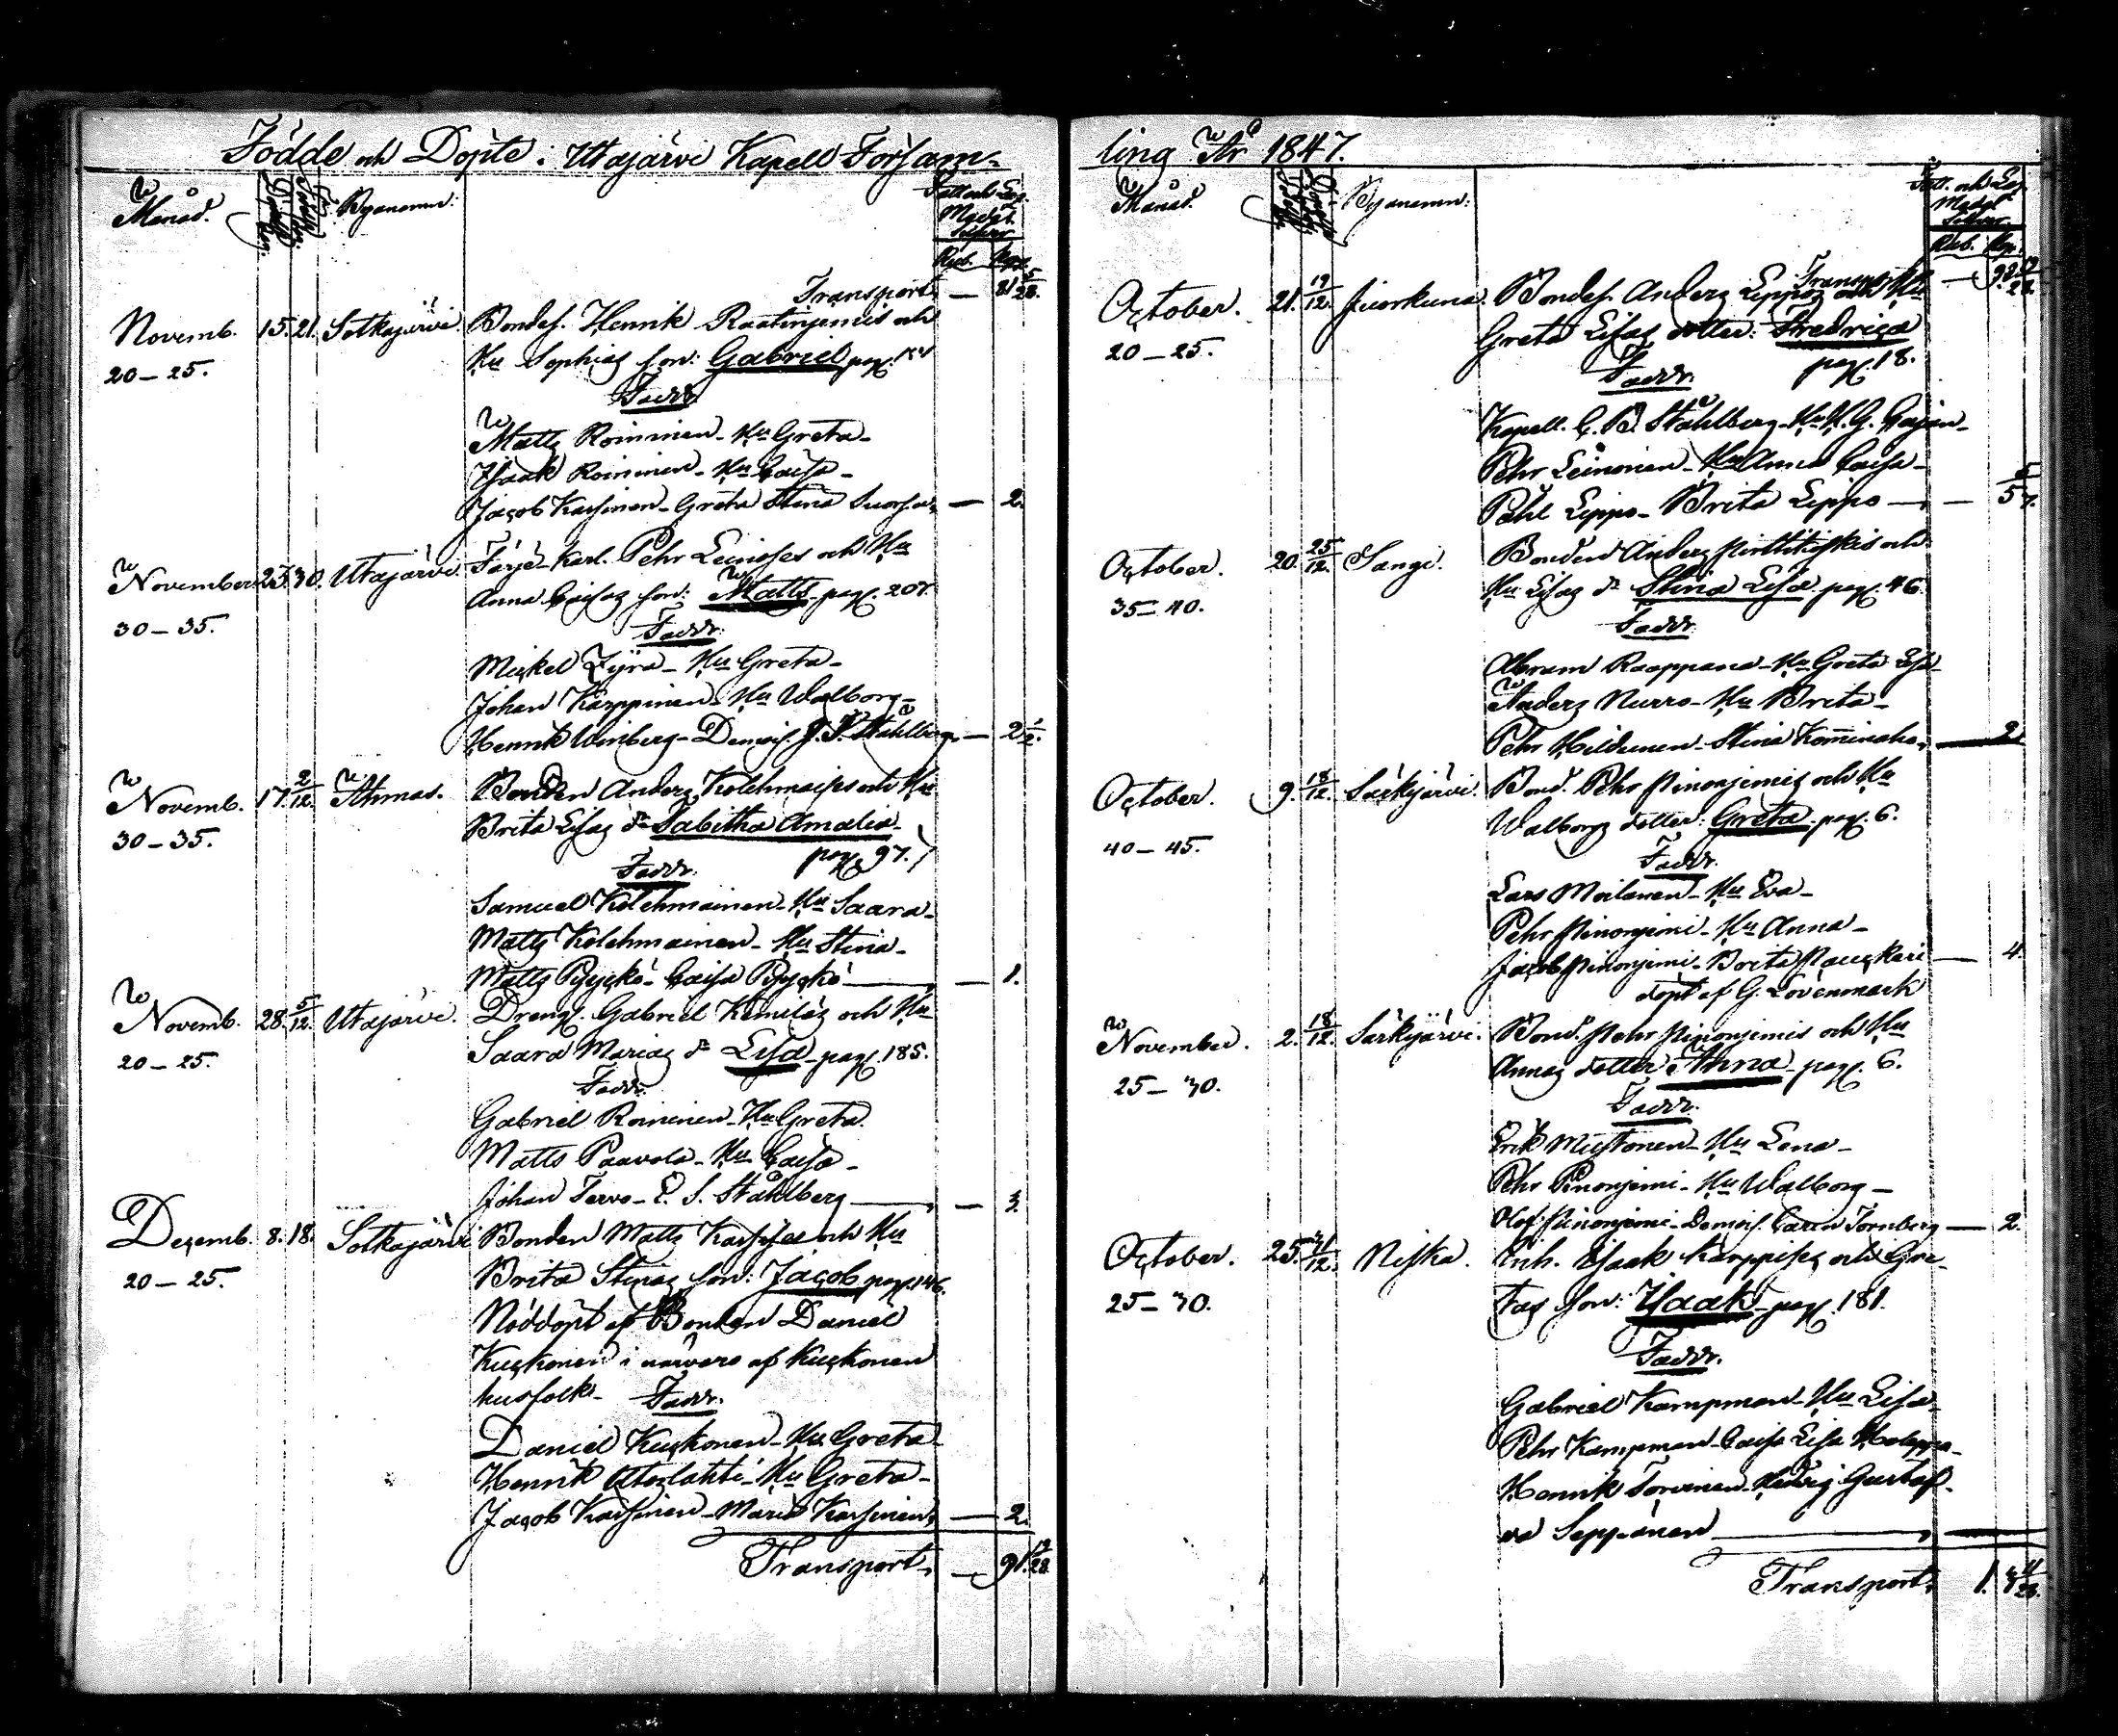 Födde och Döpte i Utajärvi Kapell Försam-
Månad. Byanamn:
Rub. Kop.
Transport — 81 5/28.
Novemb. 15. 21. Sotkajärvi. Bondes. Henrik Raatinjemis och
20–25. Hu Sophias son: Gabriel pag.
Faddr.
Matts Roininen – Hu Greta –
Isaak Roininen – Hu Caisa –
Jacob Karsinen – Greta Stina Suorsa, — 2.
November 23. 30. Utajärvi. Färje-Karl. Pehr Leinoses och Hu
30–35. Anna Caisas son: Matts pag. 207.
Faddr.
Mickel Zyra – Hu Greta –
Johan Karppinen – Hu Walborg –
Henrik Winberg – Demois. J. S. Ståhlberg, — 2 1/2.
Novemb. 17. 2/12. Ahmas. Bonden Anders Kolehmaises och Hu
30–35. Brita Lisas dr Tabitha Amalia
pag. 97.
Faddr.
Samuel Kolehmainen – Hu Saara –
Matts Kolehmainen – Hu Stina –
Matts Pyyckö – Caisa Pyyckö — 1.
Novemb. 28. 5/12. Utajärvi. Dreng. Gabriel Kemiläs och Hu
20–25. Saara Marias dr Lisa – pag. 185.
Faddr.
Gabriel Roininen – Hu Greta.
Matts Paavola – Hu Caisa –
Johan Tervo – E. S. Ståhlberg —, — 3
Decemb. 8. 18. Sotkajärvi Bonden Matts Karsises och Hu
20–25. Brita Stinas son: Jacob pag. 146.
Nöddöpt af Bonden Daniel
Kuckonen i närvaro af Kuckonen
husfolk – Faddr.
Daniel Kuckonen – Hu Greta –
Henrik Utoslahti – Hu Greta –
Jacob Karsinen – Maria Karsinen, — 2.
Transport, — 91. 19/28
ling År 1847.
Månad. Byanamn:
Rub. Kop.
Transport
October. 21. 19/12. Juorkuna. Bondes. Anders Lippos och Hu
20–25. Greta Lisas dotter: Fredrica
pag. 18.
Faddr.
Kapell. C. B. Ståhlberg – Hu H. G. Cajan –
Pehr Leinonen – Hu Anna Caisa –
Påhl Lippo – Brita Lippo —
October. 20. 25/12. Sangi. Bonden Anders Pirttikoskis och
35–40. Hu Lisas dr Stina Lisa pag. 46.
Faddr.
Abram Raappana – Hu Greta Lisa –
Anders Nurro – Hu Brita –
Pehr Hildunen – Stina Komminaho, — 2
October. 9. 18/12. Särkijärvi. Bond. Pehr Ninonjemis och Hu
40–45. Walborgs dotter: Greta pag. 6.
Faddr.
Lars Moilanen – Hu Eva –
Pehr Ninonjemi – Hu Anna –
Jacob Ninonjemi – Brita Nauckari — 4.
döpt af G. Lövenmark
November. 2. 18/12. Särkijärvi. Bond. Pehr Ninonjemis och Hu
25–30. Annas dotter Anna – pag. 6.
Faddr.
Erik Mustonen – Hu Lena –
Pehr Ninonjemi – Hu Walborg –
Olof Ninonjemi – Demois. Caren Tornberg — 2.
October. 25. 31/12. Niska. Inh. Isaak Karppises och Gre-
25–30. tas son: Isaak – pag. 181.
Faddr.
Gabriel Kampman – Hu Lisa –
Pehr Kampman – Caisa Lisa Holappa –
Henrik Torvinen – Hedvig Gustaf-
va Seppänen —,
Transport, 1.